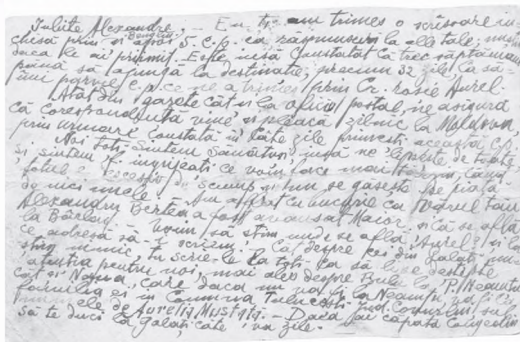 Iubite Alexandre, — Eu ți-am trimes o scrisoare in-
chisă prin și apoi 5 c.p. ca răspunsuri la ale tale,
daca le ai primit. Este însă constatat că trec săptămâni
până să ajungă la destinație, precum 32 zile la
unei c.p. ce ne a trimes prin Cr. rosie Aurel.
Atât din gazete cât și la oficiul postal, ne asigură
că corespondența vine și pleacă zilnic la Moldova,
prin urmare constată în câte zile primești această c.p.
Noi toți suntem sănătoși, însă ne lipsește de toate,
și suntem f. ingrijeați ce vom face mai târziu, când
totul e excesiv de scump și nu se gasește pe piață
de nici unele. Am aflat cu bucurie ca vărul tău
Alexandru Bertea a fost avansat Maior și că se află
la Bârlad. să stim unde se află Aurel și la
ce adresă să-i scriem. Cât despre cei din Galați, nu
știm nimic, tu scrie-le la toți ca să li se deștepte
atenția pentru noi, mai ales despre
cât și Nașua, care daca nu va fi la Neamțu, va fi cu
familia ei în comuna Tulucești jud. Covurlui,
ela de Aurelia Mustață. — Daca ai căpata congediu
să te duci la Galați, câte va zile.